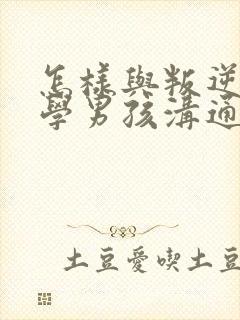 怎樣與叛逆
學男孩溝通
土豆愛喫土豆